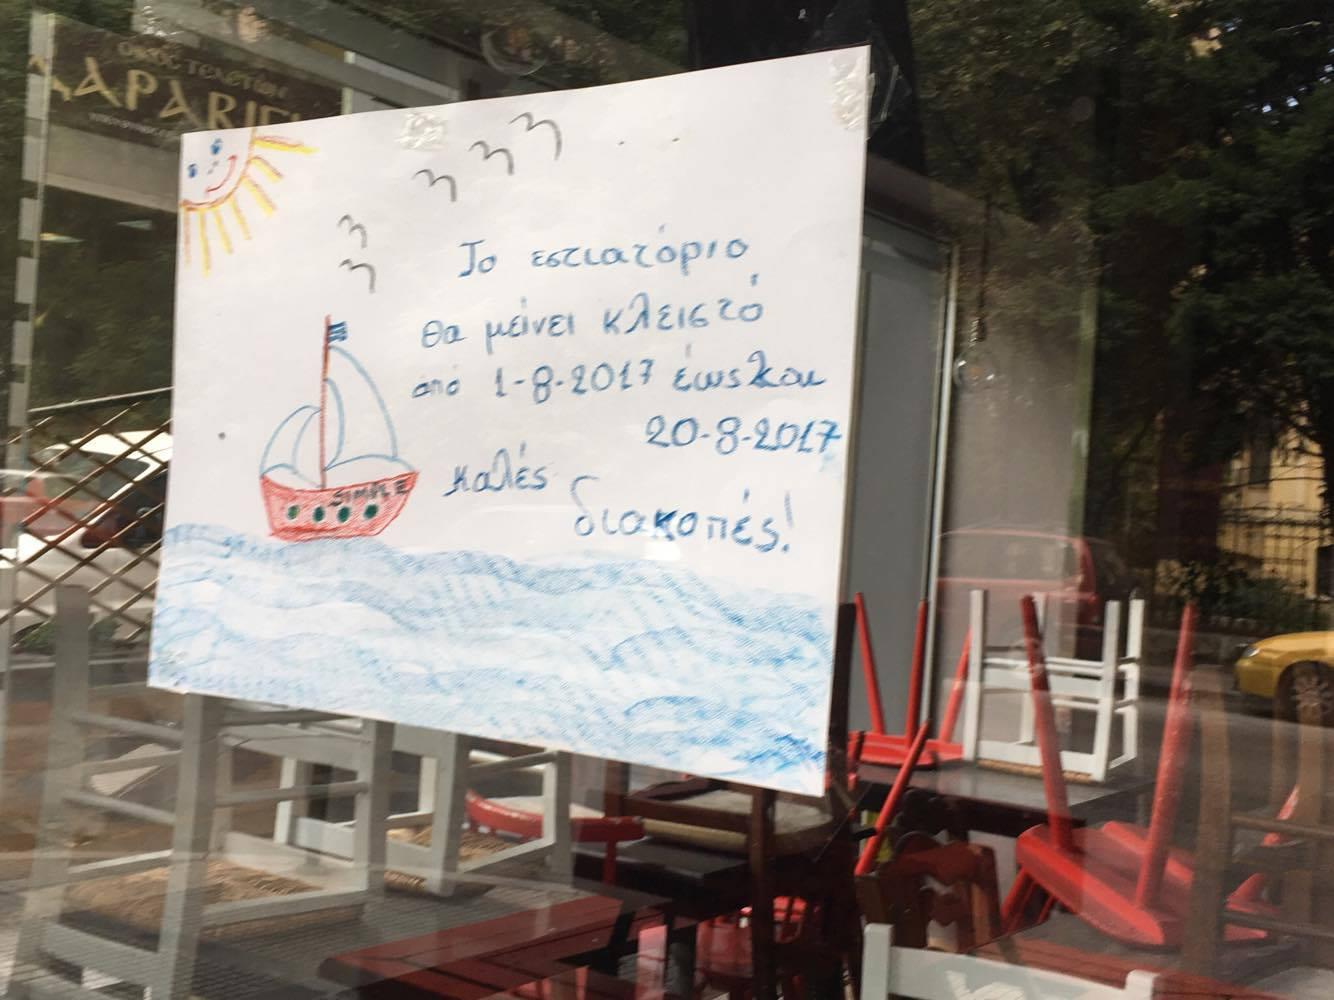 ΟΙΚΟΣ ΤΕΛΕΤΩΝ
Το εστιατόριο
θα μείνει κλειστό
από 1-8-2017 έως και
20-8-2017
καλές
διακοπές!
SIMPLE